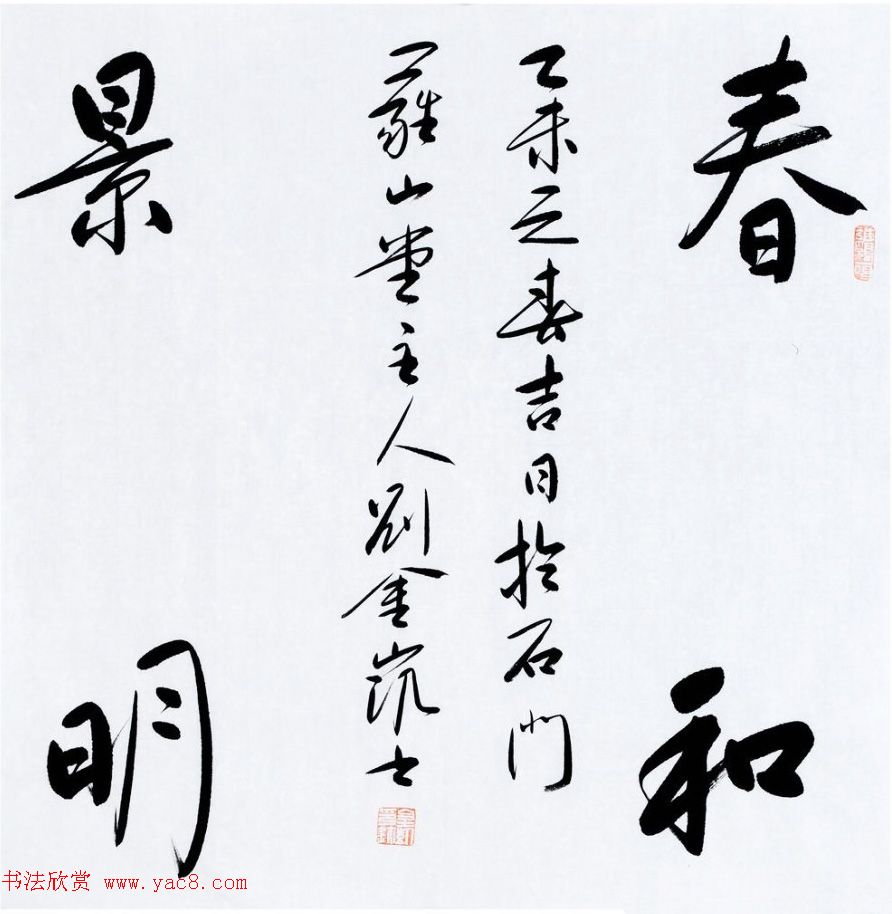 春和
乙未之春吉日於石門
羅山堂主人劉金凱士
景明
书法欣赏 www.yac8.com